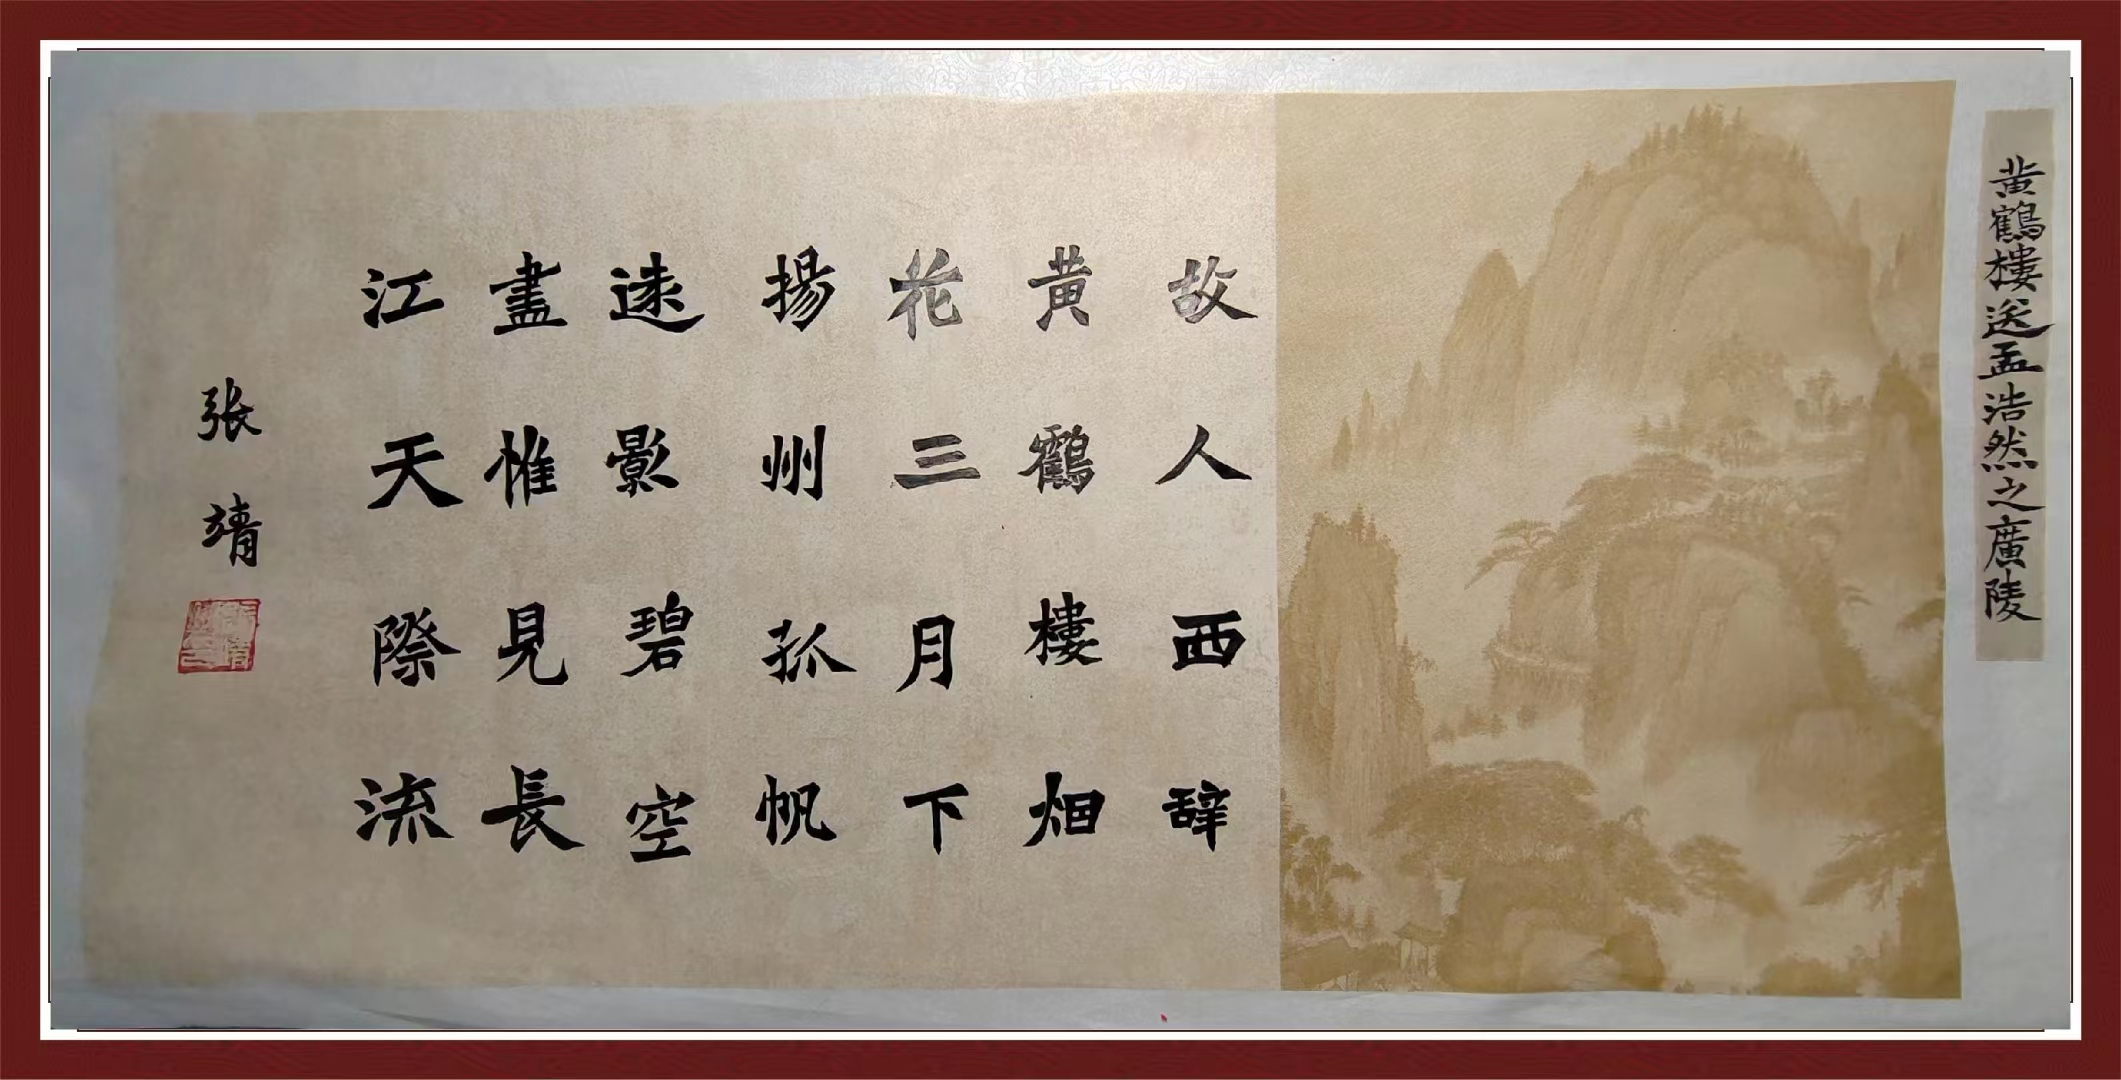 黄鶴樓送孟浩然之廣陵
故人西辞
黄鶴樓烟
花三月下
揚州孤帆
遠影碧空
盡惟見長
江天際流
张靖